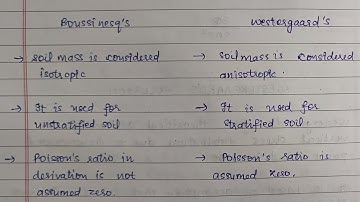 Boussinesq's
westergaard's
→ soil mass is considered
isotropic
→ soil mass is considered
anisotropic.
→ It is used for
unstratified soil
→ It is used for
stratified soil.
→ Poisson's ratio in
derivation is not
assumed zero.
→ Poisson's ratio is
assumed zero.